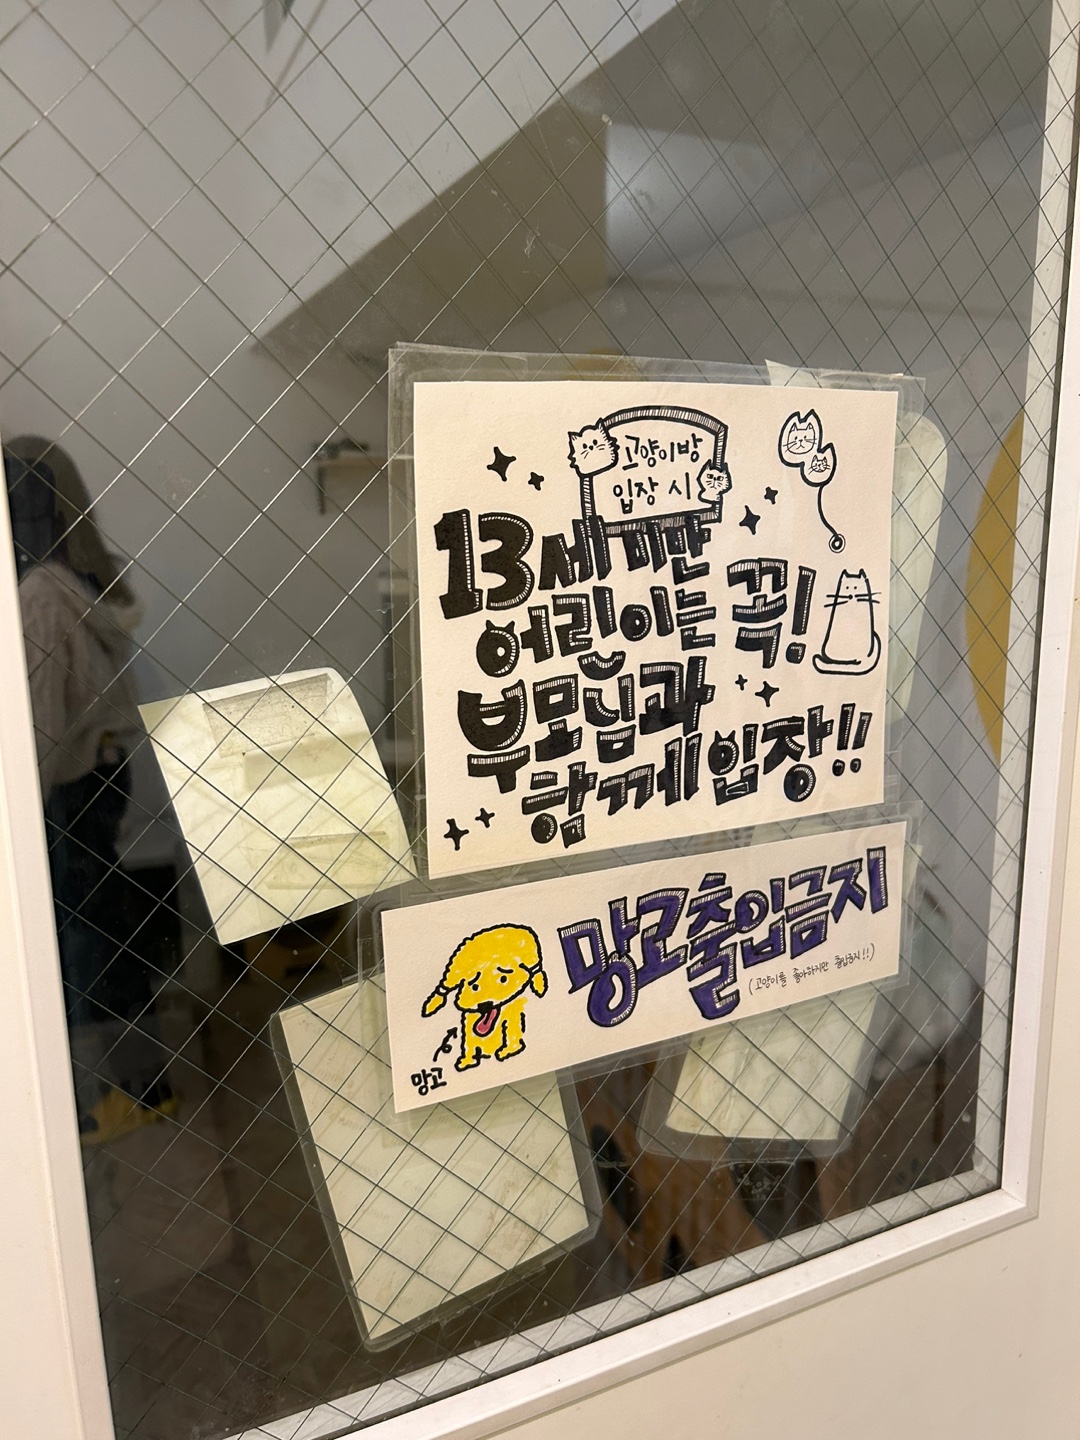 고양이방
입장 시
13세 미만
어린이는 꼭!
부모님과
함께 입장!!
망고출입금지
(고양이를 좋아하지만 출입금지!!)
망고